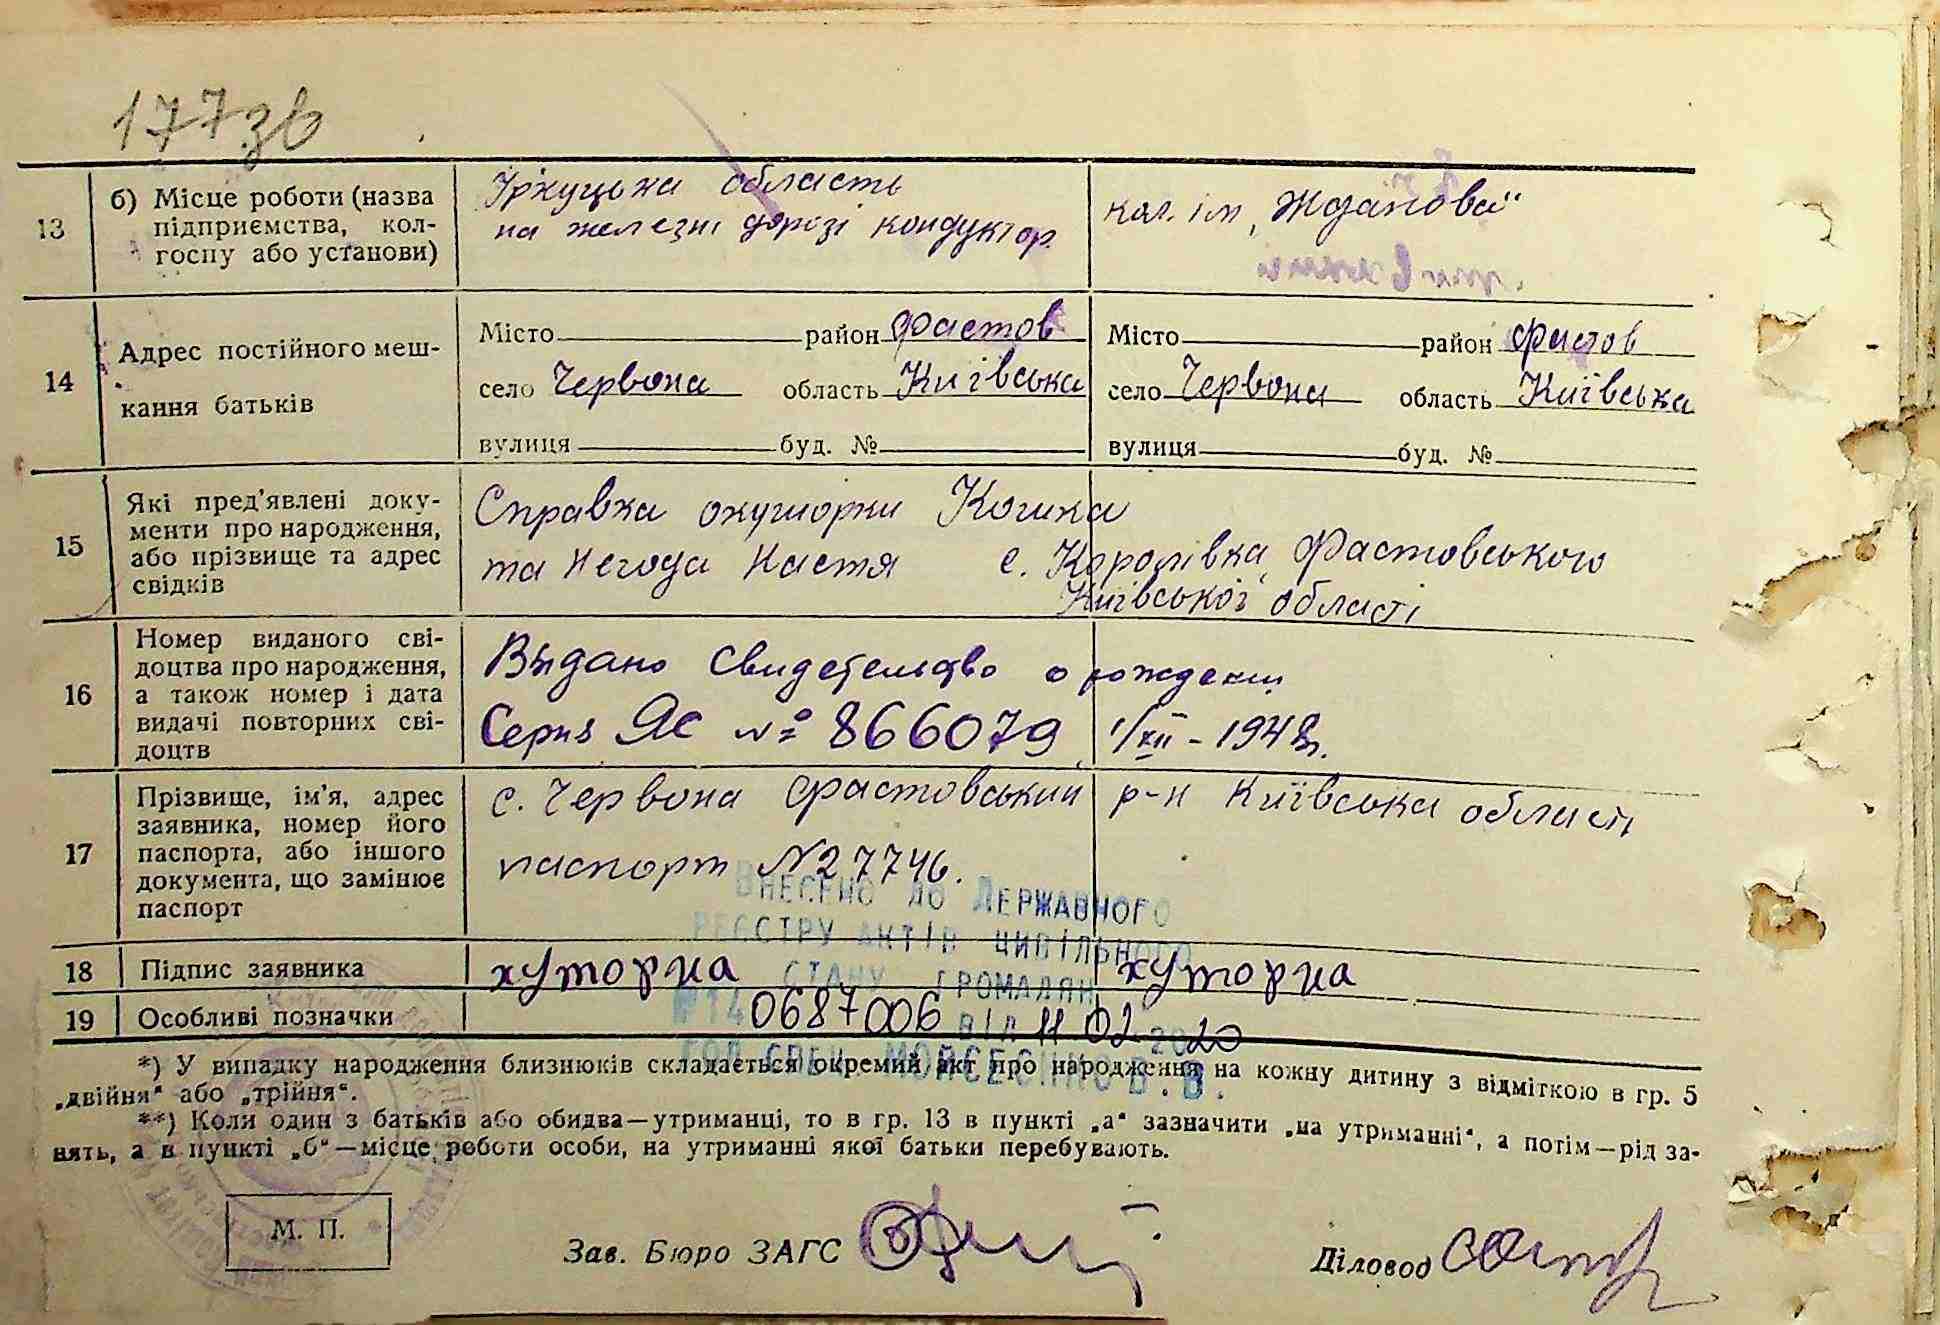 177зв
13
б) Місце роботи (назва
підприємства, кол-
госпу або установи)
Іркуцька область
на железні дорозі кондуктор.
кол. ім. „Жданова"
14
Адрес постійного меш-
кання батьків
Місто район Фастов
село Червона область Київська
вулиця буд. №
Місто район Фастов
село Червона область Київська
вулиця буд. №
15
Які пред'явлені доку-
менти про народження,
або прізвище та адрес
свідків
Справка окушорки
та Негода Настя с. Королівка Фастовського
Київської області
16
Номер виданого сві-
доцтва про народження,
а також номер і дата
видачі повторних сві-
доцтв
Выдано свидетельство о рождении
Серия ЯС № 866079 1/XII - 1948г.
17
Прізвище, ім'я, адрес
заявника, номер його
паспорта, або іншого
документа, що замінює
паспорт
с. Червона Фастовський р-н Київська область
паспорт №27746.
Внесено до Державного
реєстру актів цивільного
стану громадян
№ 140687006 від 11 02 2020
гол спец Мойсеєнко В.В.
18
Підпис заявника
хуторна хуторна
19
Особливі позначки
*) У випадку народження близнюків складається окремий акт про народження на кожну дитину з відміткою в гр. 5
„двійня" або „трійня".
**) Коли один з батьків або обидва—утриманці, то в гр. 13 в пункті „а" зазначити „на утриманні", а потім—рід за-
нять, а в пункті „б"—місце роботи особи, на утриманні якої батьки перебувають.
М. П.
Зав. Бюро ЗАГС
Діловод